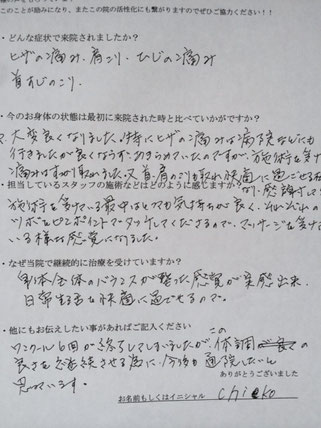 このことが励みになり、またこの院の活性化にも繋がりますのでぜひご協力ください！！
・どんな症状で来院されましたか？
ヒザの痛み、肩こり、ひじの痛み
首すじのこり.
・今のお身体の状態は最初に来院された時と比べていかがですか？
大変良くなりました。特にヒザの痛みは病院などにも
行きましたが良くならず、あきらめていたのですが、施術を受け
痛みはすっかり取れました。又、首、肩のこりも取れ快適に過ごせる様
になり、感謝して
・担当しているスタッフの施術などはどのように感じますか？
施術を受けている最中はとても気持ちが良く、それぞれの
ツボをピンポイントでタッチしてくださるので、マッサージを受けて
いる様な感覚になりました。
・なぜ当院で継続的に治療を受けていますか？
身体全体のバランスが整った感覚が実感出来、
日常生活を快適に過せるので。
・他にもお伝えしたい事があればご記入ください
この
ワンクール6回が終了してしまいましたが、体調
良さを継続させる為に、今後も通院したいと
思っています。
ありがとうございました
お名前もしくはイニシャル chieko